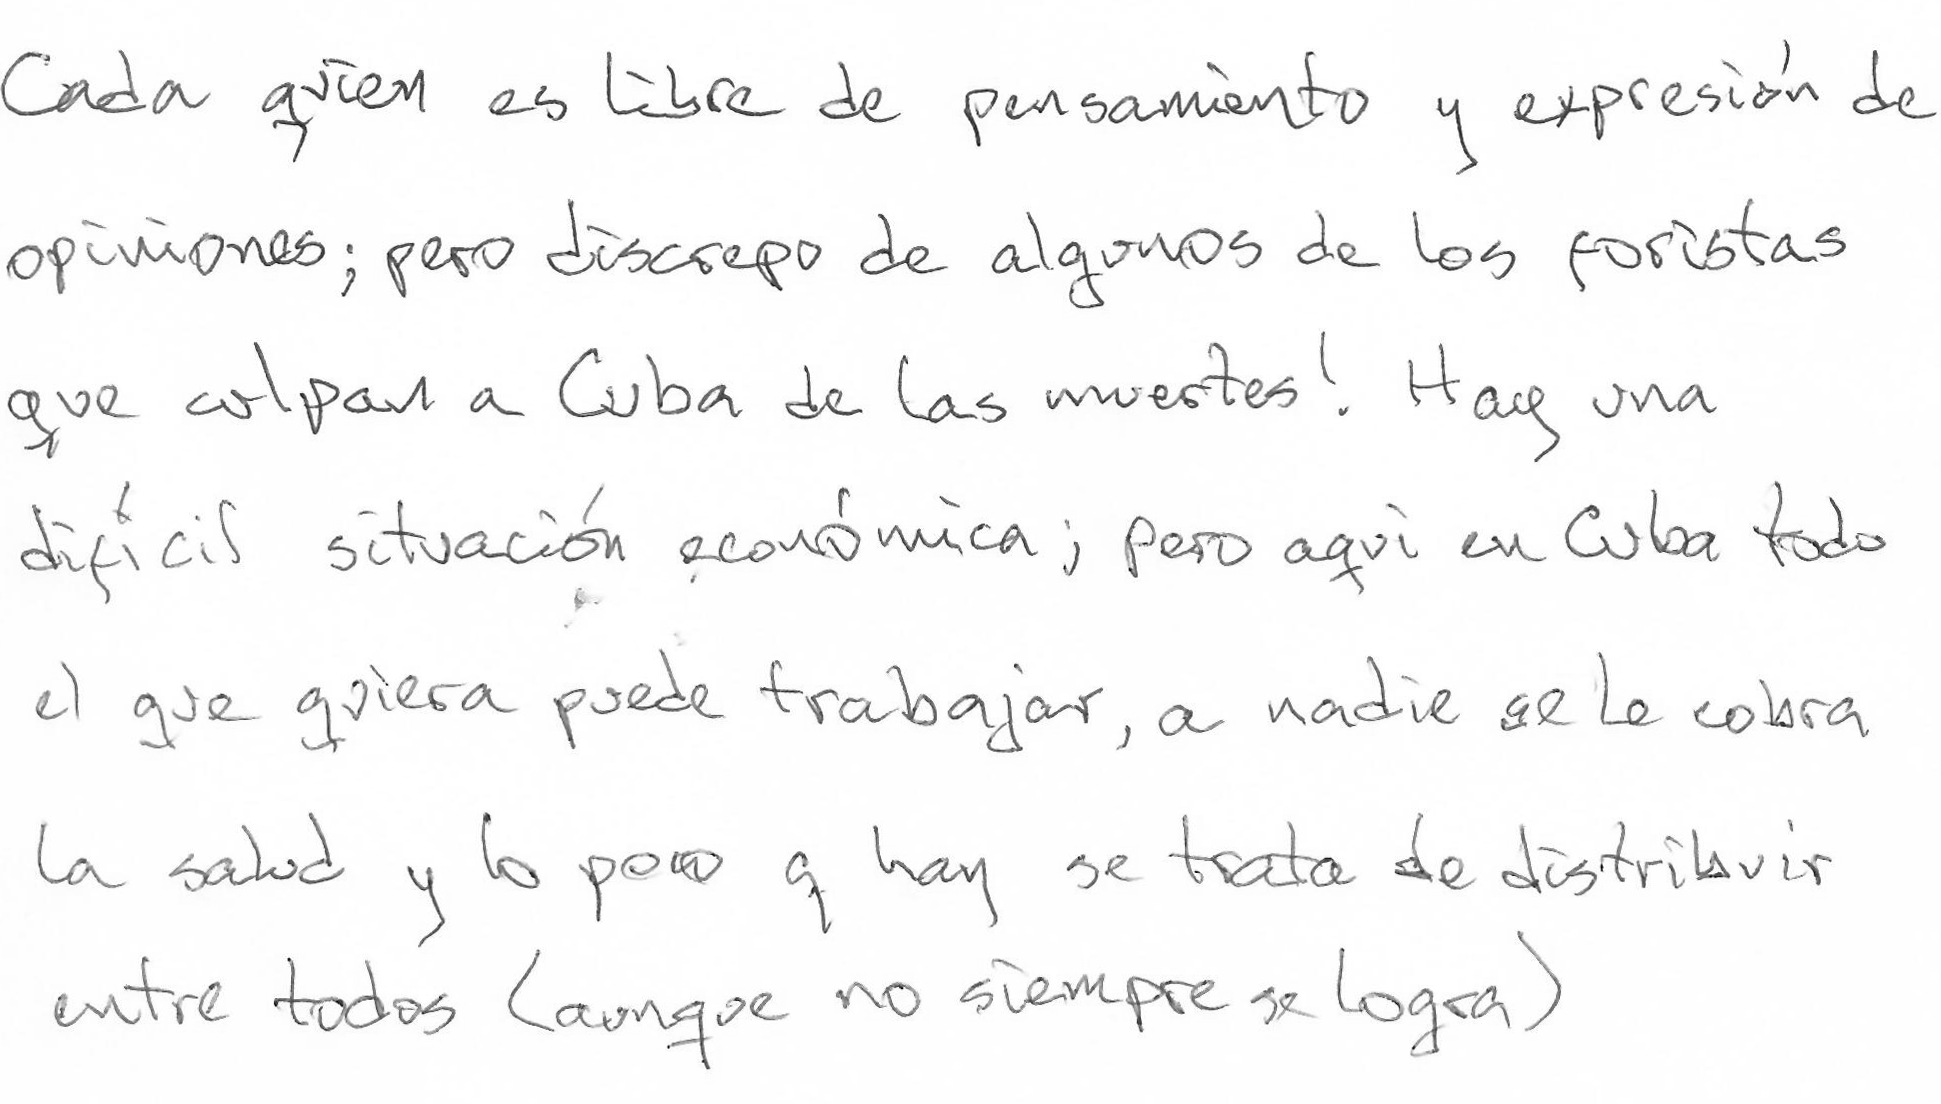 Cada quien es libre de pensamiento y expresión de
opiniones; pero discrepo de algunos de los foristas
que culpan a Cuba de las muertes! Hay una
difícil situación económica; pero aqui en Cuba todo
el que quiera puede trabajar, a nadie se le cobra
la salud y lo poco q hay se trata de distribuir
entre todos (aunque no siempre se logra)